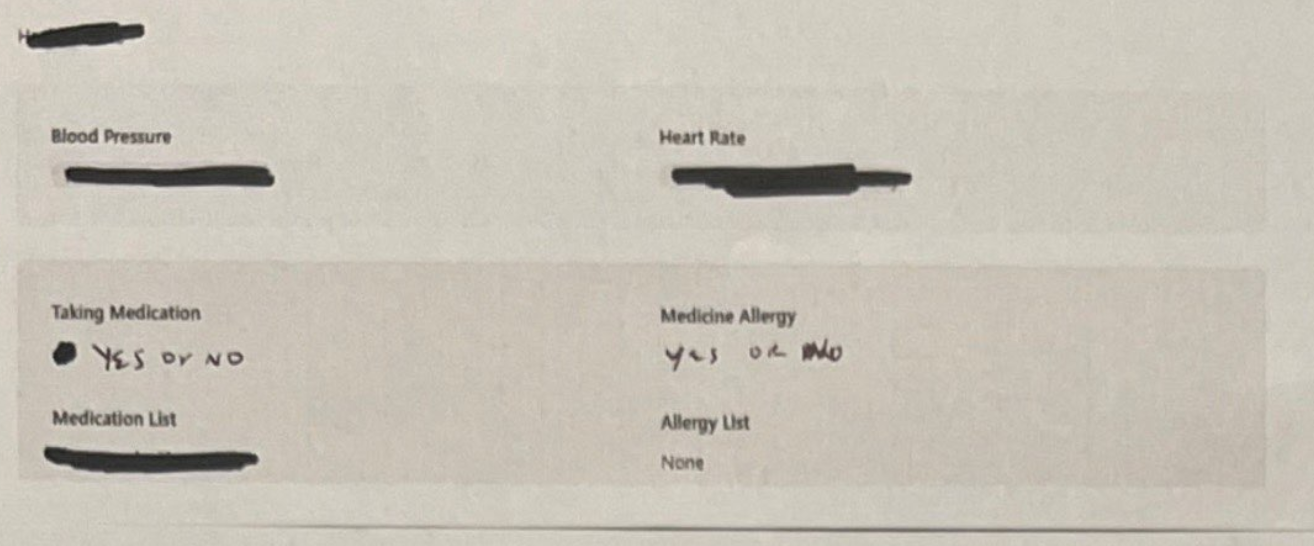 Blood Pressure
Heart Rate
Taking Medication
YES or NO
Medicine Allergy
yes or No
Medication List
Allergy List
None